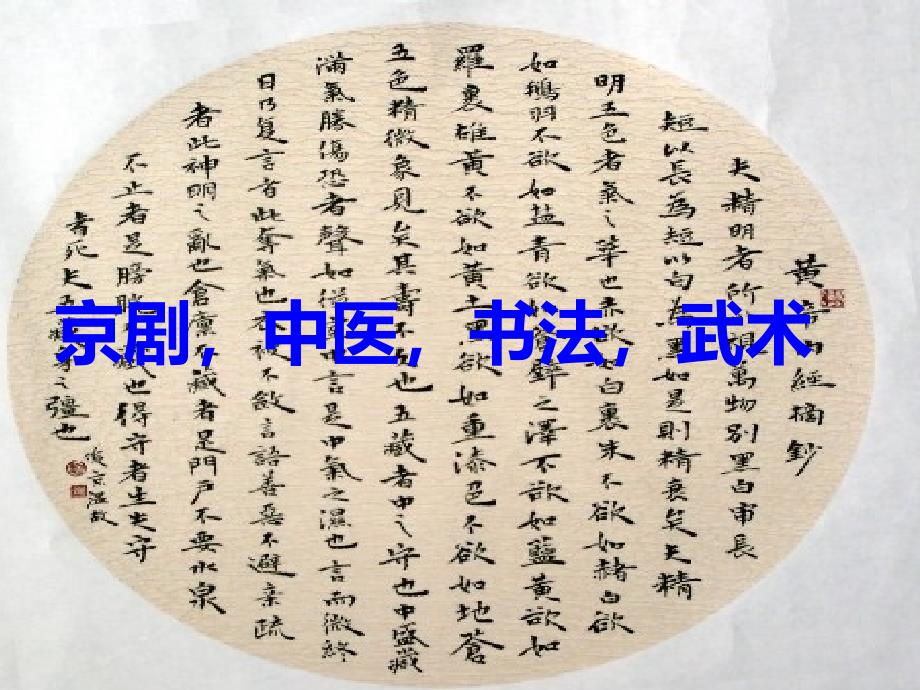 京剧，中医，书法，武术
黃帝內經摘鈔
夫精明者所視萬物別黑白審長
短以長為短以白為黑如是則精衰矣夫精
明五色者氣之華也赤欲如白裹朱不欲如赭白欲
如鵝羽不欲如盐青欲如蒼璧之澤不欲如藍黃欲如
羅裹雄黃不欲如黃土黑欲如重漆色不欲如地蒼
五色精微象見矣其壽不久也五藏者中之守也中盛藏
滿氣勝傷恐者聲如從中言是中氣之濕也言而微終
日乃复言者此奪氣也衣被不斂言語善惡不避亲疏
者此神明之亂也倉廩不藏者是門戶不要水泉
不止者是膀胱不藏也得守者生失守
者死夫五身之彊也